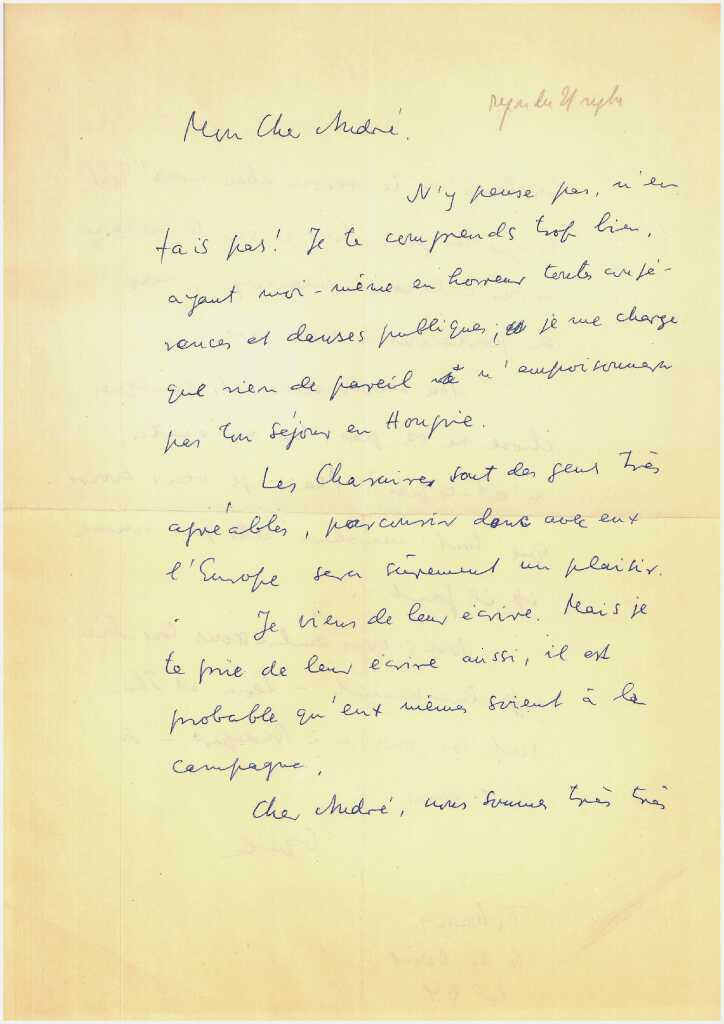 Mon Cher André.
N'y pense pas, n'en
fais pas! Je te comprends trop bien,
ayant moi-même en horreur toutes confé-
rences et danses publiques; je me charge
que rien de pareil n'empoisonnera
pas ton séjour en Hongrie.
Les Charaires sont des gens très
agréables, parcourir donc avec eux
l'Europe sera sûrement un plaisir.
Je viens de leur écrire. Mais je
te prie de leur écrire aussi, il est
probable qu'eux mêmes soient à la
campagne.
Cher André, nous sommes très très